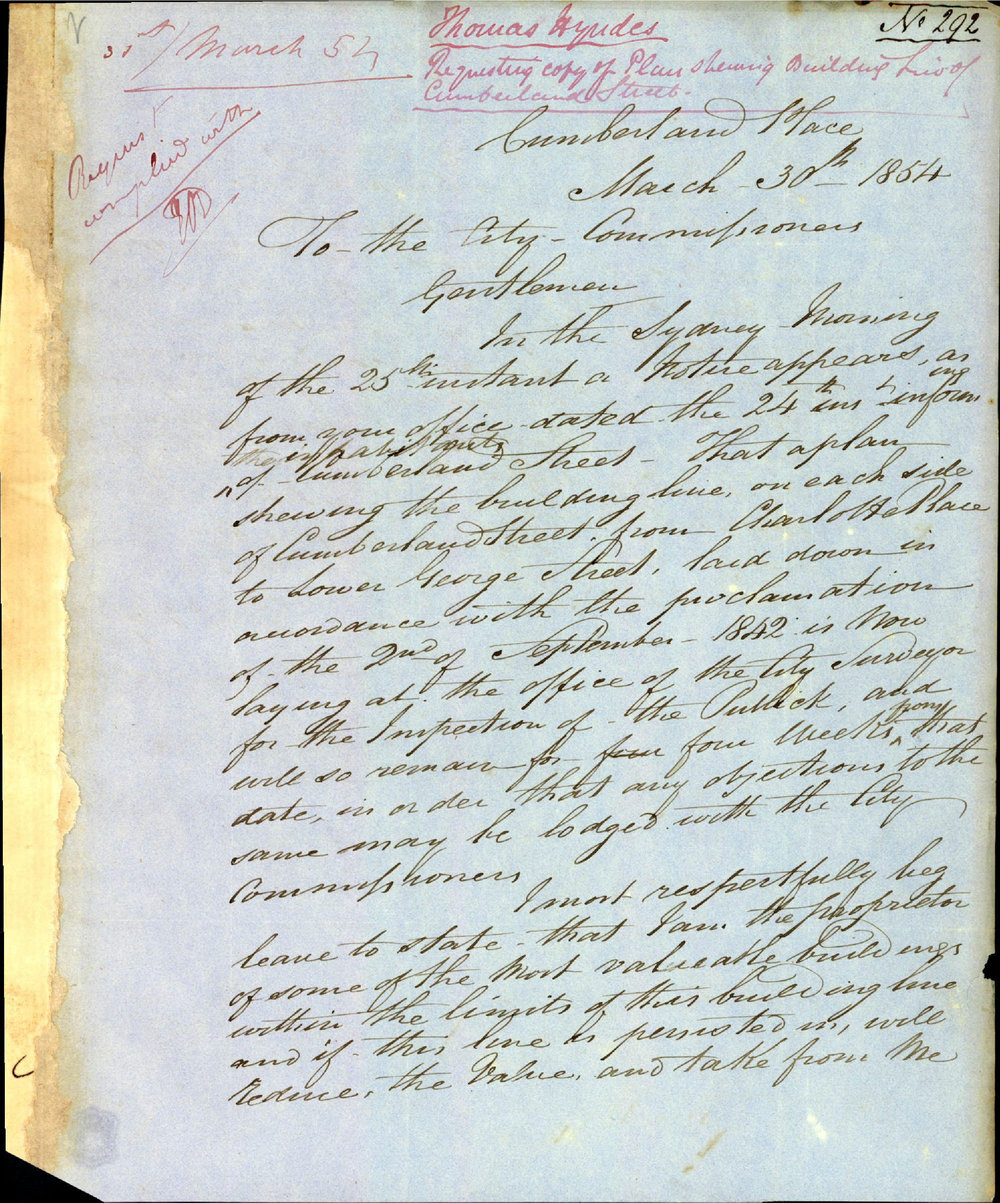 No 292
31st March 54
Thomas Hyndes
Requesting copy of Plan shewing Building Line of
Cumberland Street.
Request
complied with
Cumberland Place
March 30th 1854
To the City Commissioners
Gentlemen
In the Sydney Morning
of the 25th instant a Notice appears, as
from your office dated the 24th inst informing
the inhabitants
of Cumberland Street - That a plan
shewing the building line, on each side
of Cumberland Street, from Charlotte Place
to Lower George Street, laid down in
accordance with the proclamation
of the 2nd of September 1842 is Now
laying at the office of the City Surveyor
for the Inspection of the Publick, and
will so remain for four Weeks from that
date, in order that any objections to the
same may be lodged with the City
Commissioners
I most respectfully beg
leave to state that I am the proprietor
of some of the Most valueable buildings
within the limits of this building line
and if this line is persisted in, will
reduce, the Value, and take from Me